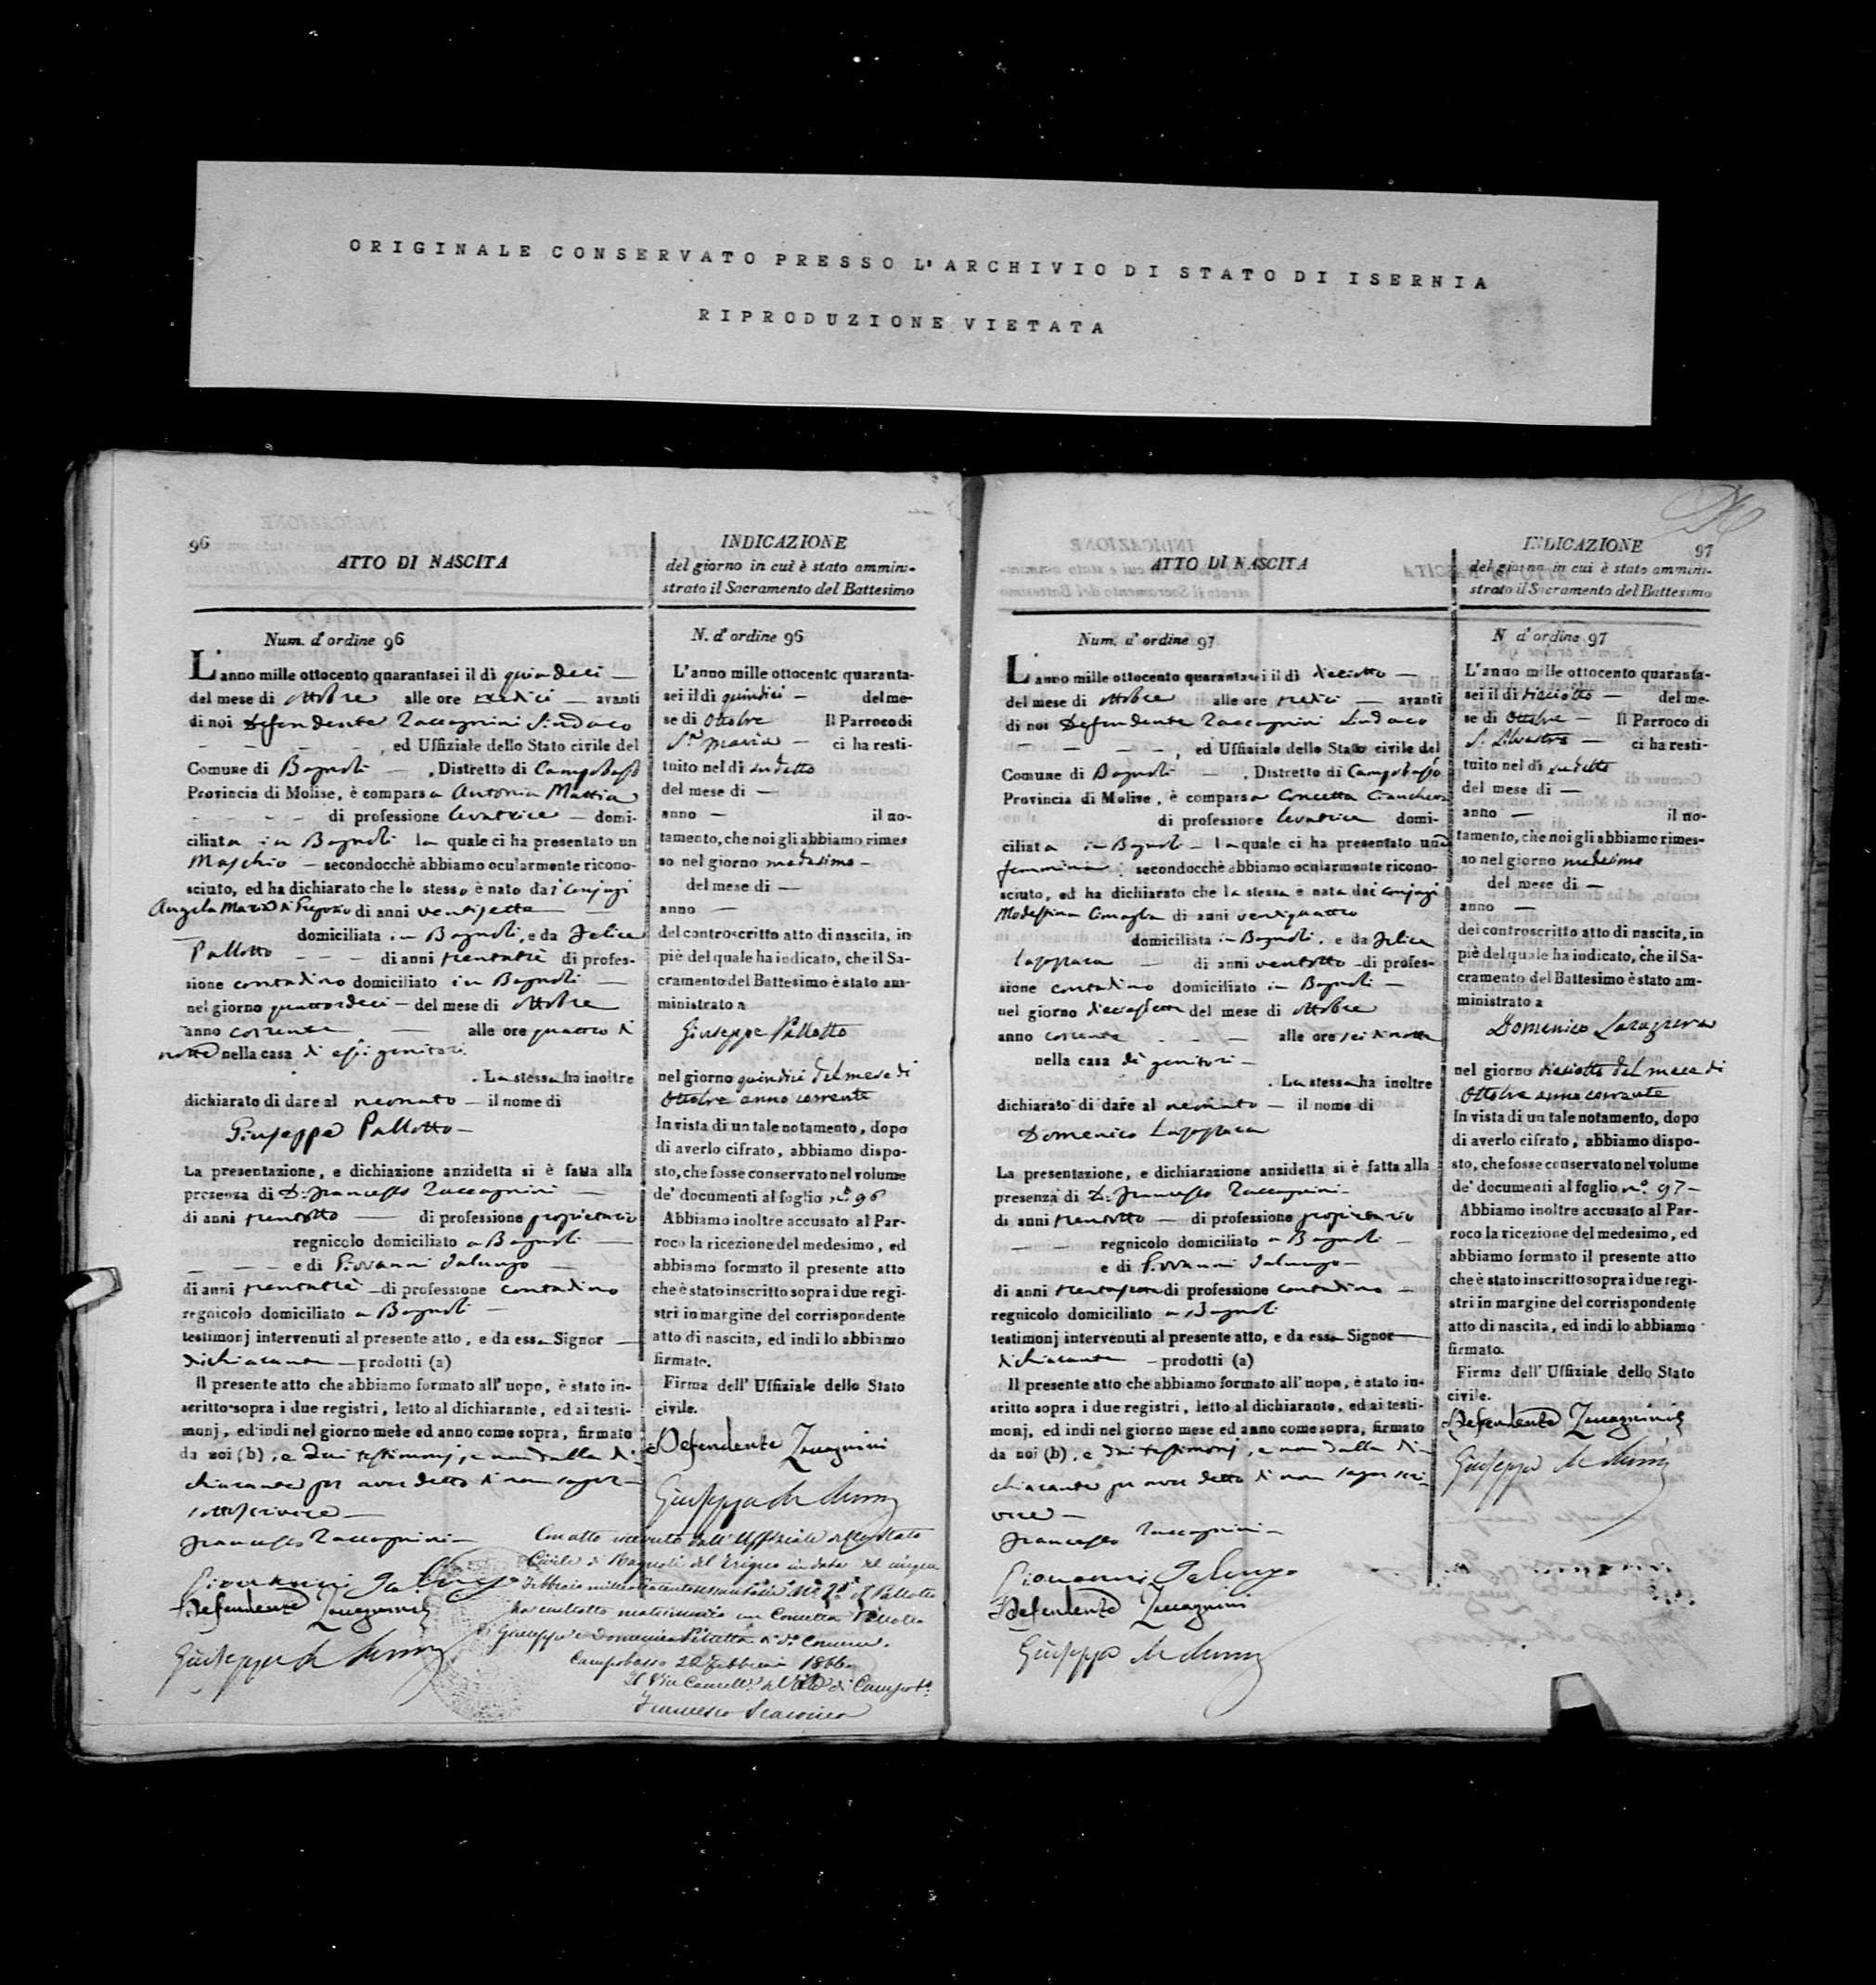 ORIGINALE CONSERVATO PRESSO L'ARCHIVIO DI STATO DI ISERNIA
RIPRODUZIONE VIETATA
96
ATTO DI NASCITA
Num. d'ordine 96
L'anno mille ottocento quarantasei il dì quindeci
del mese di ottobre alle ore tredici avanti
di noi Defendente Zaccagnini Sindaco
, ed Uffiziale dello Stato civile del
Comune di Bagnoli . Distretto di Campobasso
Provincia di Molise, è comparsa Antonia Mattia
di professione levatrice domi-
ciliata in Bagnoli la quale ci ha presentato un
Maschio secondocchè abbiamo ocularmente ricono-
sciuto, ed ha dichiarato che lo stesso è nato dai conjugi
Angela Maria di Gregorio di anni ventisette
domiciliata in Bagnoli, e da Felice
Pallotto di anni trentatrè di profes-
sione contadino domiciliato in Bagnoli
nel giorno quattordeci del mese di ottobre
anno corrente alle ore quattro di
notte nella casa di essi genitori.
. La stessa ha inoltre
dichiarato di dare al neonato il nome di
Giuseppe Pallotto
La presentazione, e dichiazione anzidetta si è fatta alla
presenza di D. Francesco Zaccagnini
di anni trentotto di professione proprietario
regnicolo domiciliato a Bagnoli
e di Giovanni Ialungo
di anni trentatrè di professione contadino
regnicolo domiciliato a Bagnoli
testimonj intervenuti al presente atto, e da essa Signor
dichiarante prodotti (a)
Il presente atto che abbiamo formato all' uopo, è stato in-
scritto sopra i due registri, letto al dichiarante, ed ai testi-
monj, ed indi nel giorno mese ed anno come sopra, firmato
da noi (b), e dai testimonj, e non dalla di-
chiarante per aver detto di non saper
sottoscrivere
Francesco Zaccagnini
Giovanni Ialungo
Defendente Zaccagnini
Giuseppe
INDICAZIONE
del giorno in cui è stato ammini-
strato il Sacramento del Battesimo
N. d'ordine 96
L'anno mille ottocento quaranta-
sei il dì quindici del me-
se di Ottobre Il Parroco di
S.a Maria ci ha resti-
tuito nel dì sudetto
del mese di
anno il no-
tamento, che noi gli abbiamo rimes
so nel giorno medesimo
del mese di
anno
del controscritto atto di nascita, in
piè del quale ha indicato, che il Sa-
cramento del Battesimo è stato am-
ministrato a
Giuseppe Pallotto
nel giorno quindici del mese di
Ottobre anno corrente
In vista di un tale notamento, dopo
di averlo cifrato, abbiamo dispo-
sto, che fosse conservato nel volume
de' documenti al foglio n.° 96
Abbiamo inoltre accusato al Par-
roco la ricezione del medesimo, ed
abbiamo formato il presente atto
che è stato inscritto sopra i due regi-
stri in margine del corrispondente
atto di nascita, ed indi lo abbiamo
firmato.
Firma dell' Uffiziale dello Stato
civile.
Defendente Zaccagnini
Giuseppe
Con atto ricevuto dall' Uffiziale dello Stato
Civile di Bagnoli del Trigno in data del cinque
Febbraio
ha contratto matrimonio con Concetta
di Giuseppe e Domenica di d.o Comune.
Campobasso 20 Febbraio 1866
Il Vice Cancell.
Francesco
97
ATTO DI NASCITA
Num. d'ordine 97
L'anno mille ottocento quarantasei il dì dieciotto
del mese di ottobre alle ore tredici avanti
di noi Defendente Zaccagnini Sindaco
, ed Uffiziale dello Stato civile del
Comune di Bagnoli . Distretto di Campobasso
Provincia di Molise, è comparsa Concetta
di professione levatrice domi-
ciliata in Bagnoli la quale ci ha presentato una
femmina secondocchè abbiamo ocularmente ricono-
sciuto, ed ha dichiarato che la stessa è nata dai conjugi
Modestina di anni ventiquattro
domiciliata in Bagnoli, e da Felice
di anni ventotto di profes-
sione contadino domiciliato in Bagnoli
nel giorno dieciassette del mese di ottobre
anno corrente alle ore sei di notte
nella casa di genitori
. La stessa ha inoltre
dichiarato di dare al neonato il nome di
Domenico
La presentazione, e dichiarazione anzidetta si è fatta alla
presenza di D. Francesco Zaccagnini
di anni trentotto di professione proprietario
regnicolo domiciliato a Bagnoli
e di Giovanni Ialungo
di anni di professione contadino
regnicolo domiciliato a Bagnoli
testimonj intervenuti al presente atto, e da essa Signor
dichiarante prodotti (a)
Il presente atto che abbiamo formato all' uopo, è stato in-
scritto sopra i due registri, letto al dichiarante, ed ai testi-
monj, ed indi nel giorno mese ed anno come sopra, firmato
da noi (b), e dai testimonj, e non dalla di-
chiarante per aver detto di non saper scri-
vere
Francesco Zaccagnini
Giovanni Ialungo
Defendente Zaccagnini
Giuseppe
INDICAZIONE
del giorno in cui è stato ammini-
strato il Sacramento del Battesimo
N. d'ordine 97
L'anno mille ottocento quaranta-
sei il dì dieciotto del me-
se di Ottobre Il Parroco di
S. Silvestro ci ha resti-
tuito nel dì sudetto
del mese di
anno il no-
tamento, che noi gli abbiamo rimes-
so nel giorno medesimo
del mese di
anno
del controscritto atto di nascita, in
piè del quale ha indicato, che il Sa-
cramento del Battesimo è stato am-
ministrato a
Domenico
nel giorno dieciotto del mese di
Ottobre anno corrente
In vista di un tale notamento, dopo
di averlo cifrato, abbiamo dispo-
sto, che fosse conservato nel volume
de' documenti al foglio n.° 97
Abbiamo inoltre accusato al Par-
roco la ricezione del medesimo, ed
abbiamo formato il presente atto
che è stato inscritto sopra i due regi-
stri in margine del corrispondente
atto di nascita, ed indi lo abbiamo
firmato.
Firma dell' Uffiziale dello Stato
civile.
Defendente Zaccagnini
Giuseppe